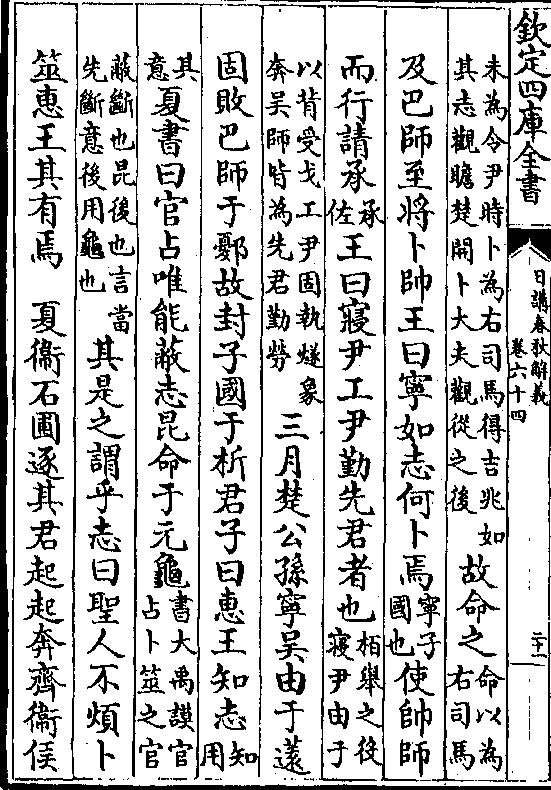 欽定四庫全書
日講春秋解義
卷六十四
二十一
未為令尹時卜為右司馬得吉兆如
其志觀瞻楚開卜大夫觀從之後
故命之
命以為
右司馬
及巴師至將卜帥王曰寧如志何卜焉
寧子
國也
使帥師
而行請承
承
佐
王曰寢尹工尹勤先君者也
栢舉之役
寢尹由于
以背受戈工尹固執燧象
奔吳師皆為先君勤勞
三月楚公孫寧吳由于薳
固敗巴師于鄾故封子國于析君子曰惠王知志
知
用
其
意
夏書曰官占唯能蔽志昆命于元龜
書大禹謨官
占卜筮之官
蔽斷也昆後也言當
先斷意後用龜也
其是之謂乎志曰聖人不煩卜
筮惠王其有焉　夏衛石圃逐其君起起奔齊衛侯